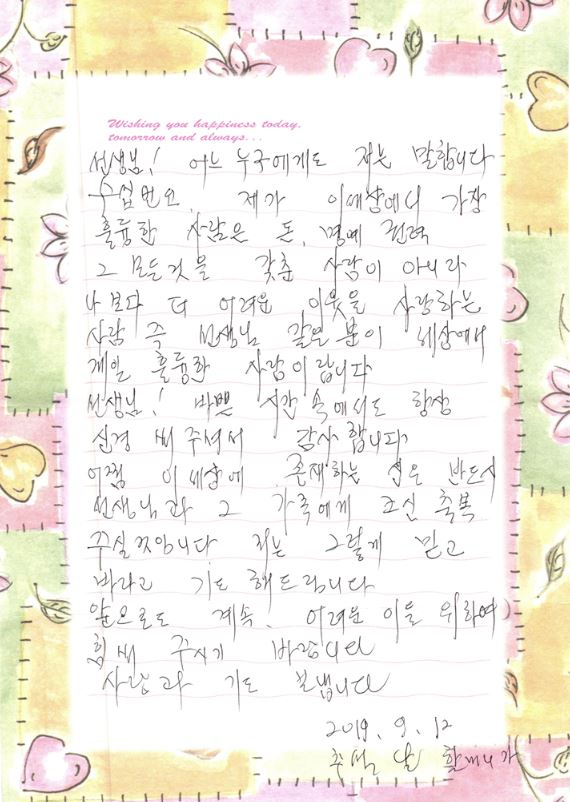 Wishing you happiness today,
tomorrow and always...
선생님! 어느 누구에게도 저는 말합니다
수업번요. 제가 이세상에서 가장
훌륭한 사람은 돈, 명예 권력
그 모든것을 갖춘 사람이 아니라
나 보다 더 어려운 이웃을 사랑하는
사람 즉 선생님 같은 분이 세상에서
제일 훌륭한 사람이랍니다
선생님! 바쁜 시간 속에서도 항상
신경 써 주셔서 감사합니다
어쩜 이세상에 존재하는 신은 반드시
선생님과 그 가족에게 크신 축복
주실것입니다 저는 그렇게 믿고
바라고 기도 해드립니다
앞으로도 계속, 어려운 이을 위하여
힘써 주시기 바랍니다
사랑과 기도 보냅니다
2019. 9. 12
추석 날 할머니가